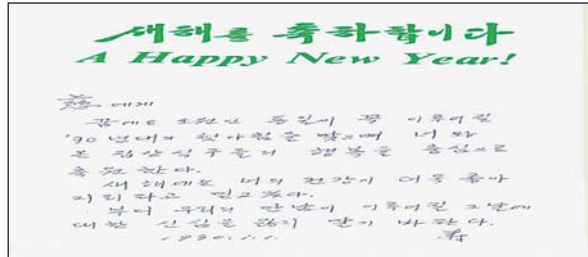 새해를 축하합니다
A Happy New Year!
에게
꿈에도 소원인 통일이 꼭 이루어질
'90년대의 첫아침을 맞으며 너와
온 집안식구들의 행복을 충심으로
축원한다.
새해에는 너의 건강이 더욱 좋아
지리라고 믿고 있다.
부디 우리의 만남이 이루어질 그날에
대한 신심을 잃지 말기 바란다.
1990.1.1.